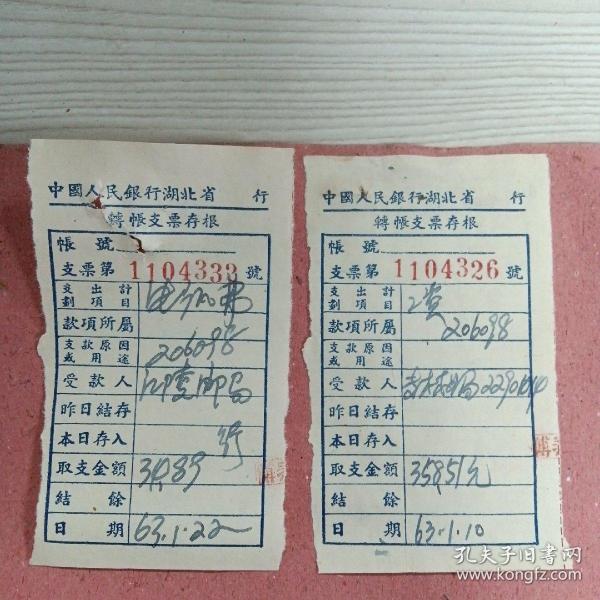 中國人民銀行湖北省 行
轉帳支票存根
帳 號
支票第1104333號
支出計劃項目
款項所屬
支款原因或用途 206098
受款人 江陵邮局
昨日結存
本日存入
取支金額
結餘
日期 63.1.22
中國人民銀行湖北省 行
轉帳支票存根
帳 號
支票第1104326號
支出計劃項目 工资
款項所屬 206098
支款原因或用途
受款人
昨日結存
本日存入
取支金額 3585元
結餘
日期 63.1.10
孔夫子旧书网
www.kongfz.com